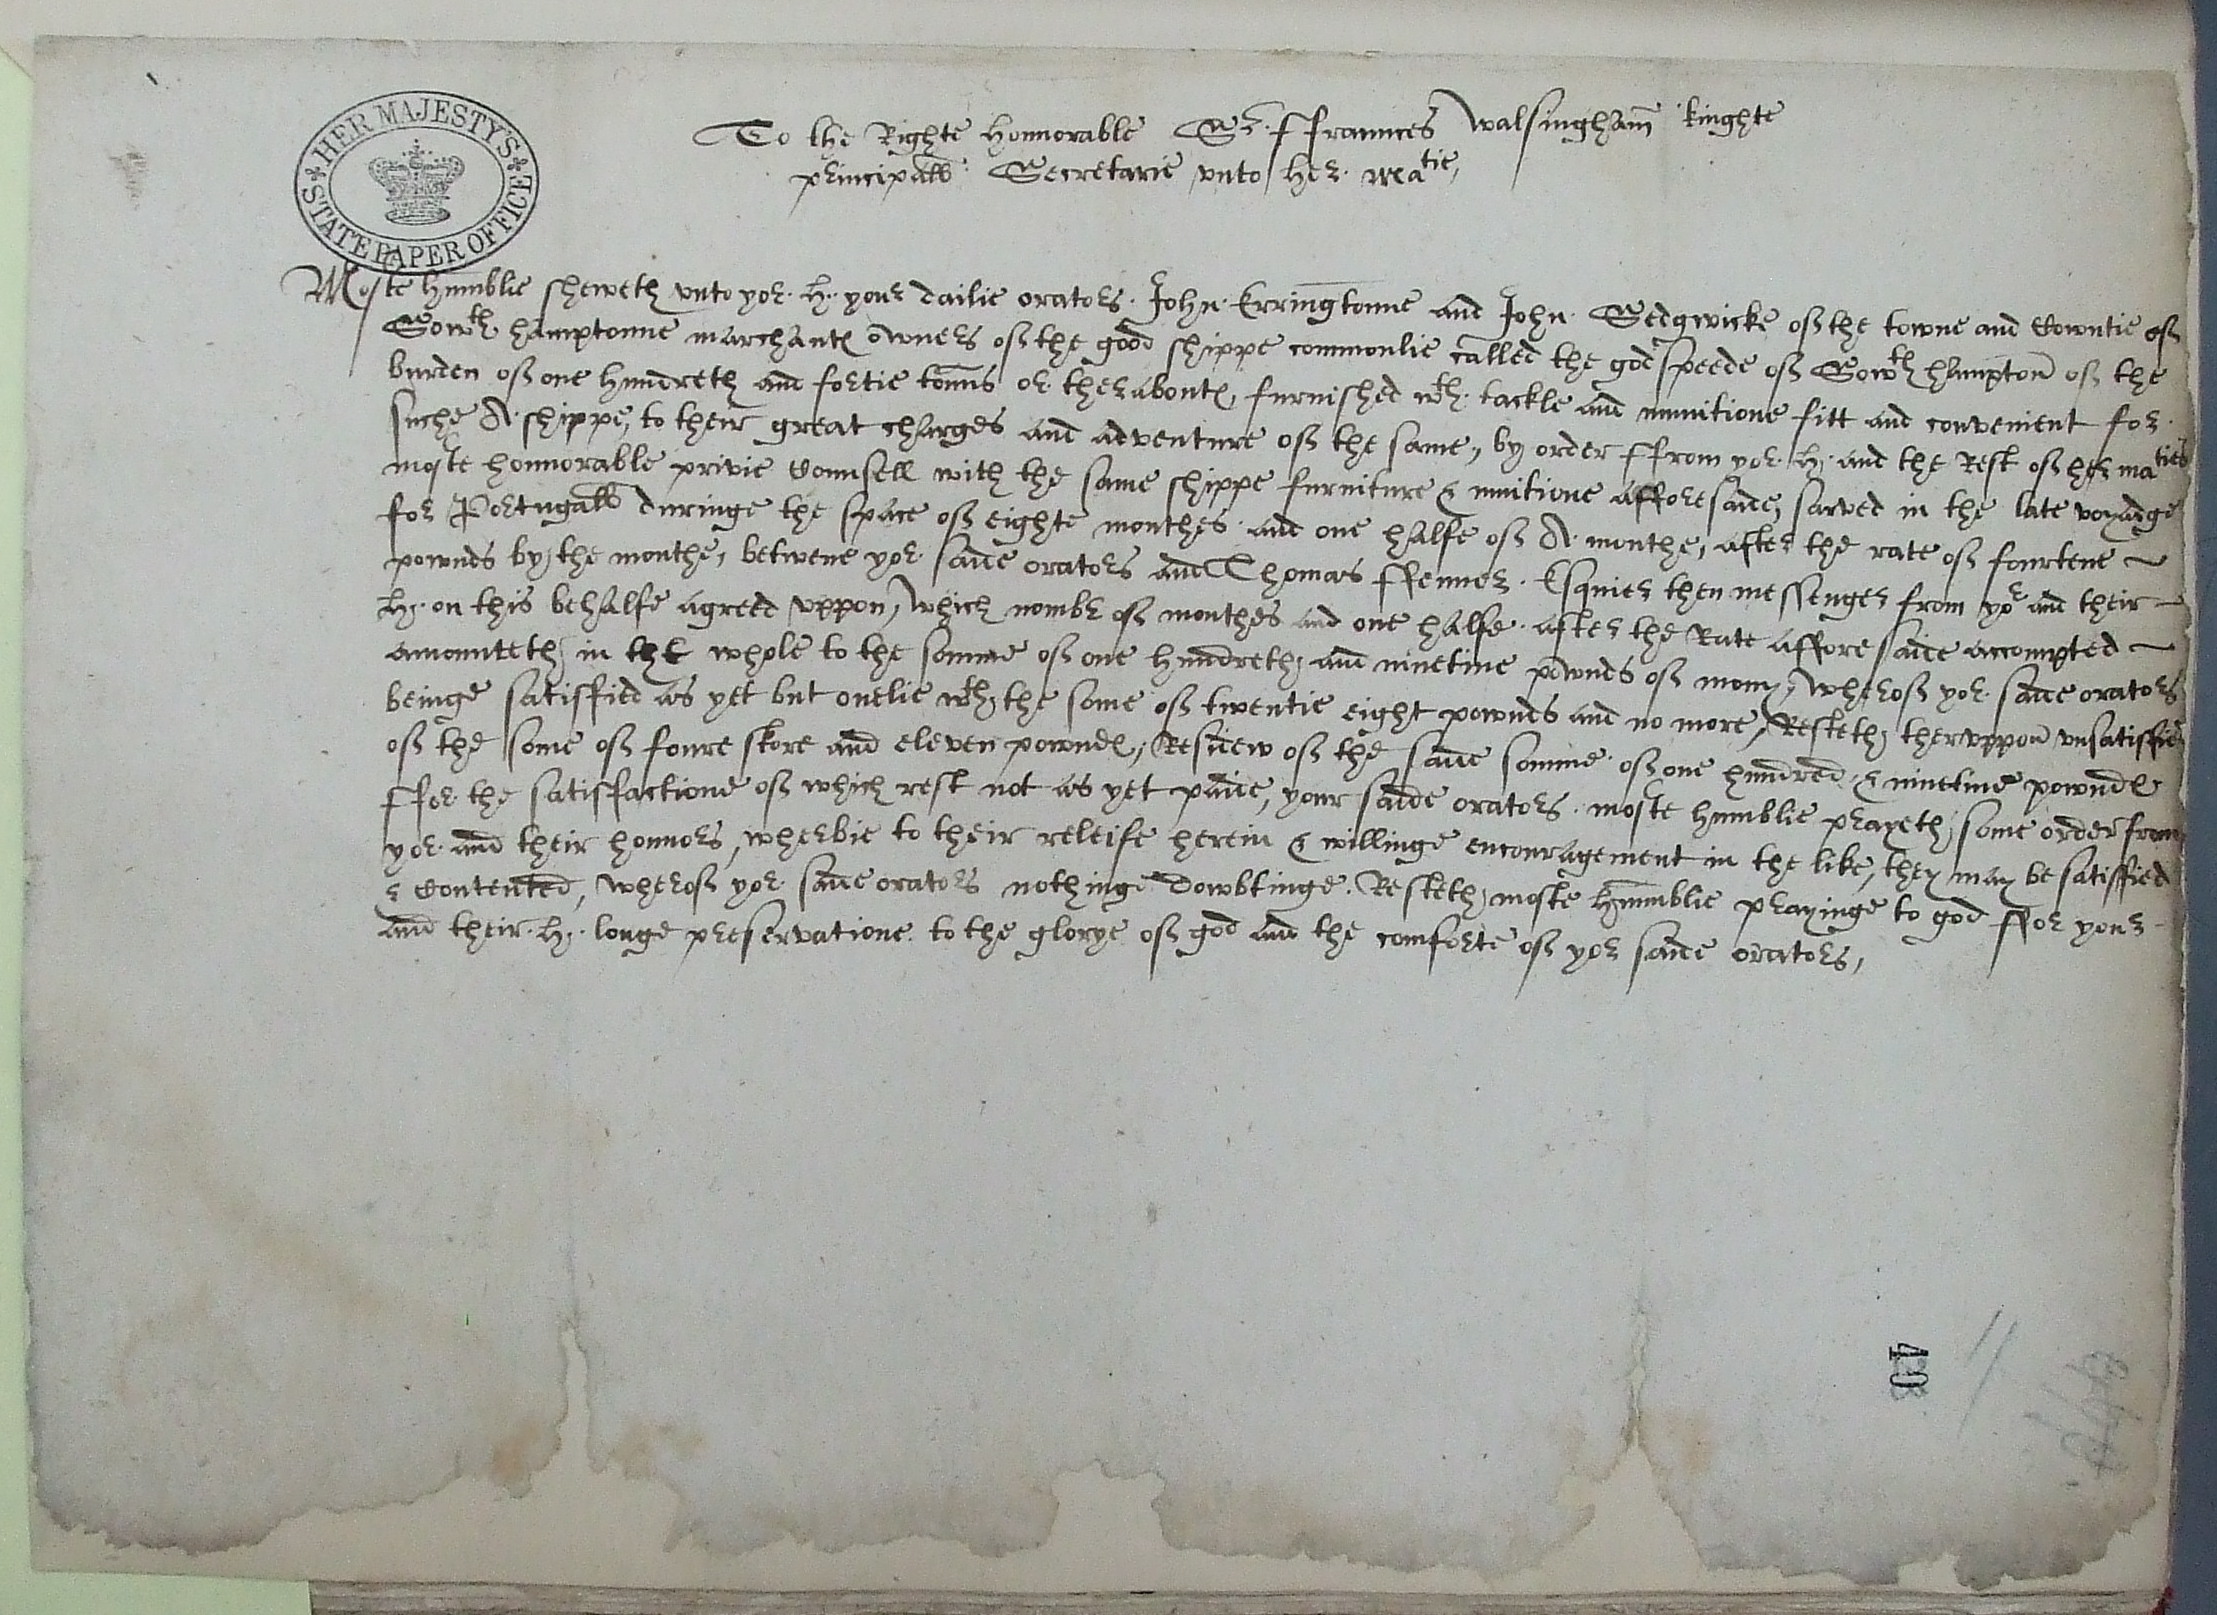 HER MAJESTY'S
STATE PAPER OFFICE
To the Righte honnorable Sr. ffraunces Walsingham kinghte
principall Secretarie vnto her Matie,
Moste humblie sheweth vnto yor. h. your dailie orators. John Erringtonne and John Sedgwicke of the towne and Cowntie of
Sowth hamptonne marchants owners of the good shippe commonlie called the god speede of Sowth hampton of the
burden of one hundreth and fortie tonns or therabouts, furnished wth. tackle and munitione fitt and convenient for.
suche A shippe, to their great charges and adventure of the same, by order ffrom yor. h. and the Rest of her maties
moste honnorable privie Counsell with the same shippe furniture & munitione afforesaide, sarved in the late voyadge
for Portugall duringe the space of eighte monthes. and one halfe of A. monthe, after the rate of fourtene
pownds by the monthe, betwene yor. saide orators and Thomas ffenner. Esquier then messenger from yor and their
h. on this behalfe agreed vppon, which nombr of monthes and one halfe. after the Rate afforesaide accompted
amounteth in the whole to the somme of one hundreth and ninetine pownds of mony, wherof yor. saide orators
beinge satisfied as yet but onelie wth, the some of twentie eight pownds and no more, Resteth thervppon vnsatisfied
of the some of foure skore and eleven pownds, Resuew of the saide somme of one hundred & ninetine pownds
ffor the satisfactione of which rest not as yet paide, your saide orators. moste humblie prayeth some order from
yor. and their honnors, wherbie to their releife herein & willinge encouragement in the like, they may be satisfied
& Contented, wherof yor. saide orators nothinge dowbtinge. Resteth moste humblie prayinge to god ffor your
and their. h. longe preservatione. to the glorye of god and the comforte of yor saide orators,
40
11